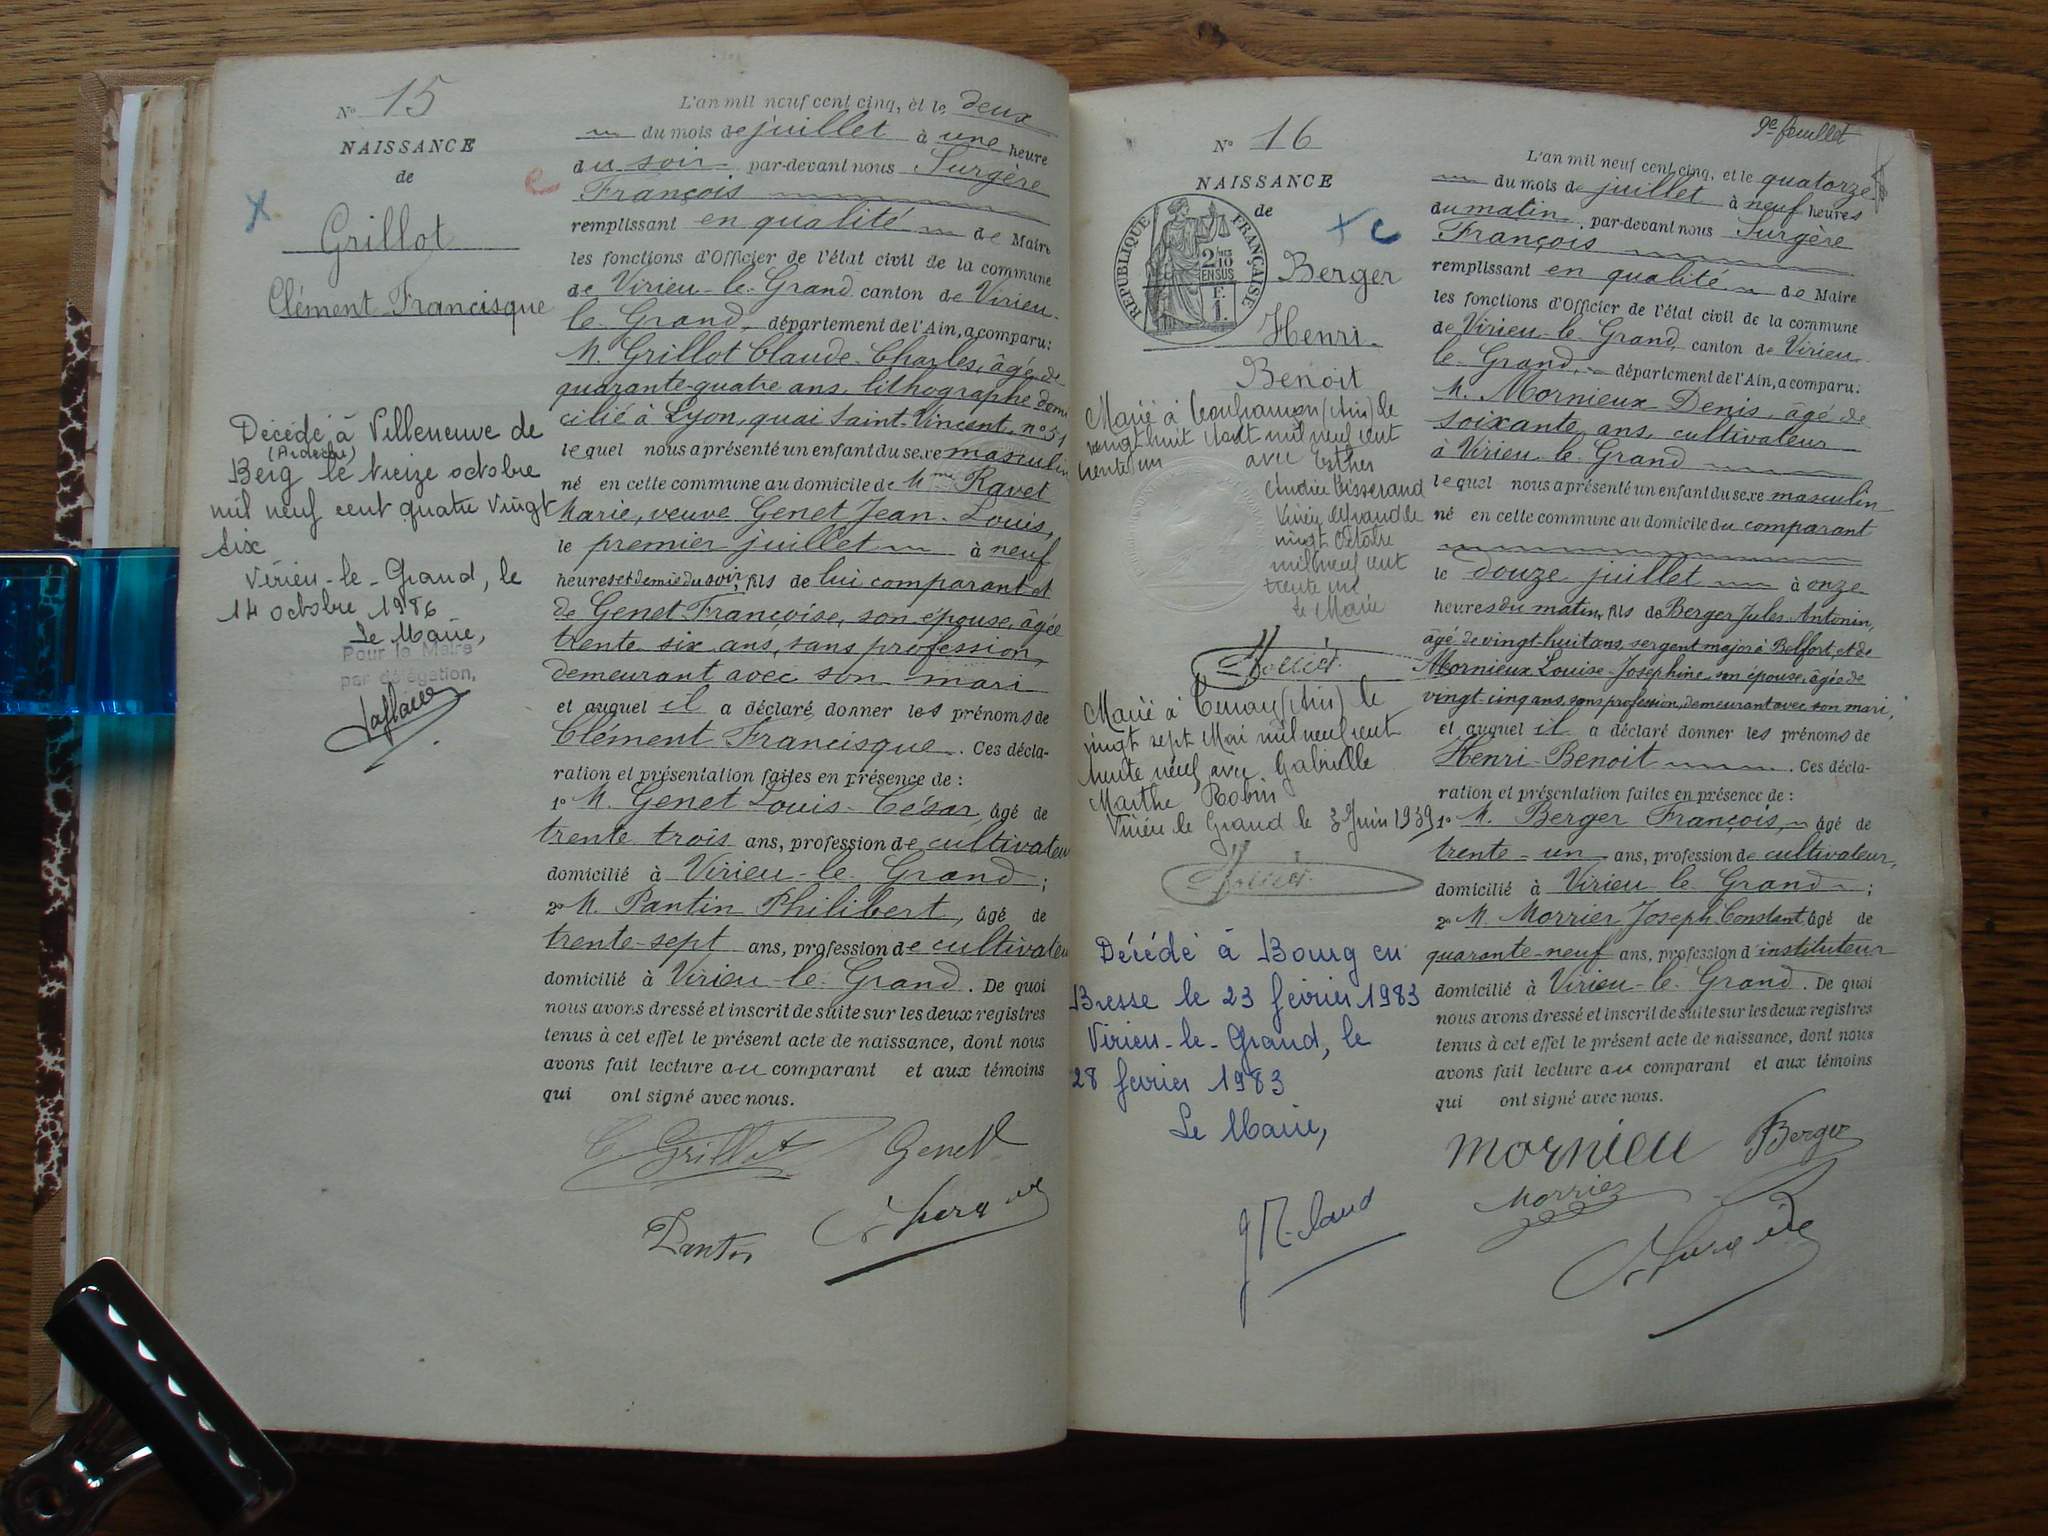 N° 15
NAISSANCE
de
Grillot
Clément Francisque
Décédé à Villeneuve de
(Ardèche)
Berg le treize octobre
mil neuf cent quatre vingt
six
Virieu-le-Grand, le
14 octobre 1986
Le Maire,
Pour le Maire
par délégation,
L'an mil neuf cent cinq, et le deux
du mois de juillet à une heure
du soir par-devant nous Surgère
François
remplissant en qualité de Maire
les fonctions d'Officier de l'état civil de la commune
de Virieu-le-Grand canton de Virieu-
le-Grand, département de l'Ain, a comparu:
M. Grillot Claude-Charles, âgé de
quarante-quatre ans, lithographe domi
cilié à Lyon, quai Saint-Vincent, n° 51
lequel nous a présenté un enfant du sexe masculin
né en cette commune au domicile de Mme Ravet
Marie, veuve Genet Jean-Louis,
le premier juillet à neuf
heures et demie du soir, fils de lui comparant et
de Genet Françoise, son épouse, âgée
trente six ans, sans profession,
demeurant avec son mari
et auquel il a déclaré donner les prénoms de
Clément Francisque. Ces décla-
ration et présentation faites en présence de :
1° M. Genet Louis-César, âgé de
trente trois ans, profession de cultivateur
domicilié à Virieu-le-Grand ;
2° M. Pantin Philibert, âgé de
trente-sept ans, profession de cultivateur
domicilié à Virieu-le-Grand. De quoi
nous avons dressé et inscrit de suite sur les deux registres
tenus à cet effet le présent acte de naissance, dont nous
avons fait lecture au comparant et aux témoins
qui ont signé avec nous.
C. Grillot Genet
Pantin Surgère
9e feuillet
N° 16
NAISSANCE
de
RÉPUBLIQUE FRANÇAISE
2/10
EN SUS
F.
1.
Berger
Henri-
Benoit
Marié à (Ain) le
vingt huit Aout mil neuf cent
trente un avec Esther
Andrée Tisserand
Virieu le Grand le
vingt Octobre
mil neuf cent
trente un
Le Maire
Marié à Tenay (Ain) le
vingt sept Mai mil neuf cent
trente neuf avec Gabrielle
Marthe Robin
Virieu le Grand le 3 Juin 1939
Décédé à Bourg en
Bresse le 23 février 1983
Virieu-le-Grand, le
28 février 1983
Le Maire,
L'an mil neuf cent cinq, et le quatorze
du mois de juillet à neuf heures
du matin par-devant nous Surgère
François
remplissant en qualité de Maire
les fonctions d'Officier de l'état civil de la commune
de Virieu-le-Grand canton de Virieu-
le-Grand, département de l'Ain, a comparu:
M. Mornieux Denis, âgé de
soixante ans, cultivateur
à Virieu-le-Grand
lequel nous a présenté un enfant du sexe masculin
né en cette commune au domicile du comparant
le douze juillet à onze
heures du matin, fils de Berger Jules-Antonin,
âgé de vingt-huit ans, sergent major à Belfort, et de
Mornieux Louise-Joséphine, son épouse, âgée de
vingt-cinq ans, sans profession, demeurant avec son mari,
et auquel il a déclaré donner les prénoms de
Henri-Benoit. Ces décla-
ration et présentation faites en présence de :
1° M. Berger François, âgé de
trente-un ans, profession de cultivateur,
domicilié à Virieu-le-Grand ;
2° M. Morrier Joseph Constant âgé de
quarante-neuf ans, profession d'instituteur
domicilié à Virieu-le-Grand. De quoi
nous avons dressé et inscrit de suite sur les deux registres
tenus à cet effet le présent acte de naissance, dont nous
avons fait lecture au comparant et aux témoins
qui ont signé avec nous.
Mornieu Berger
Morrier
Surgère